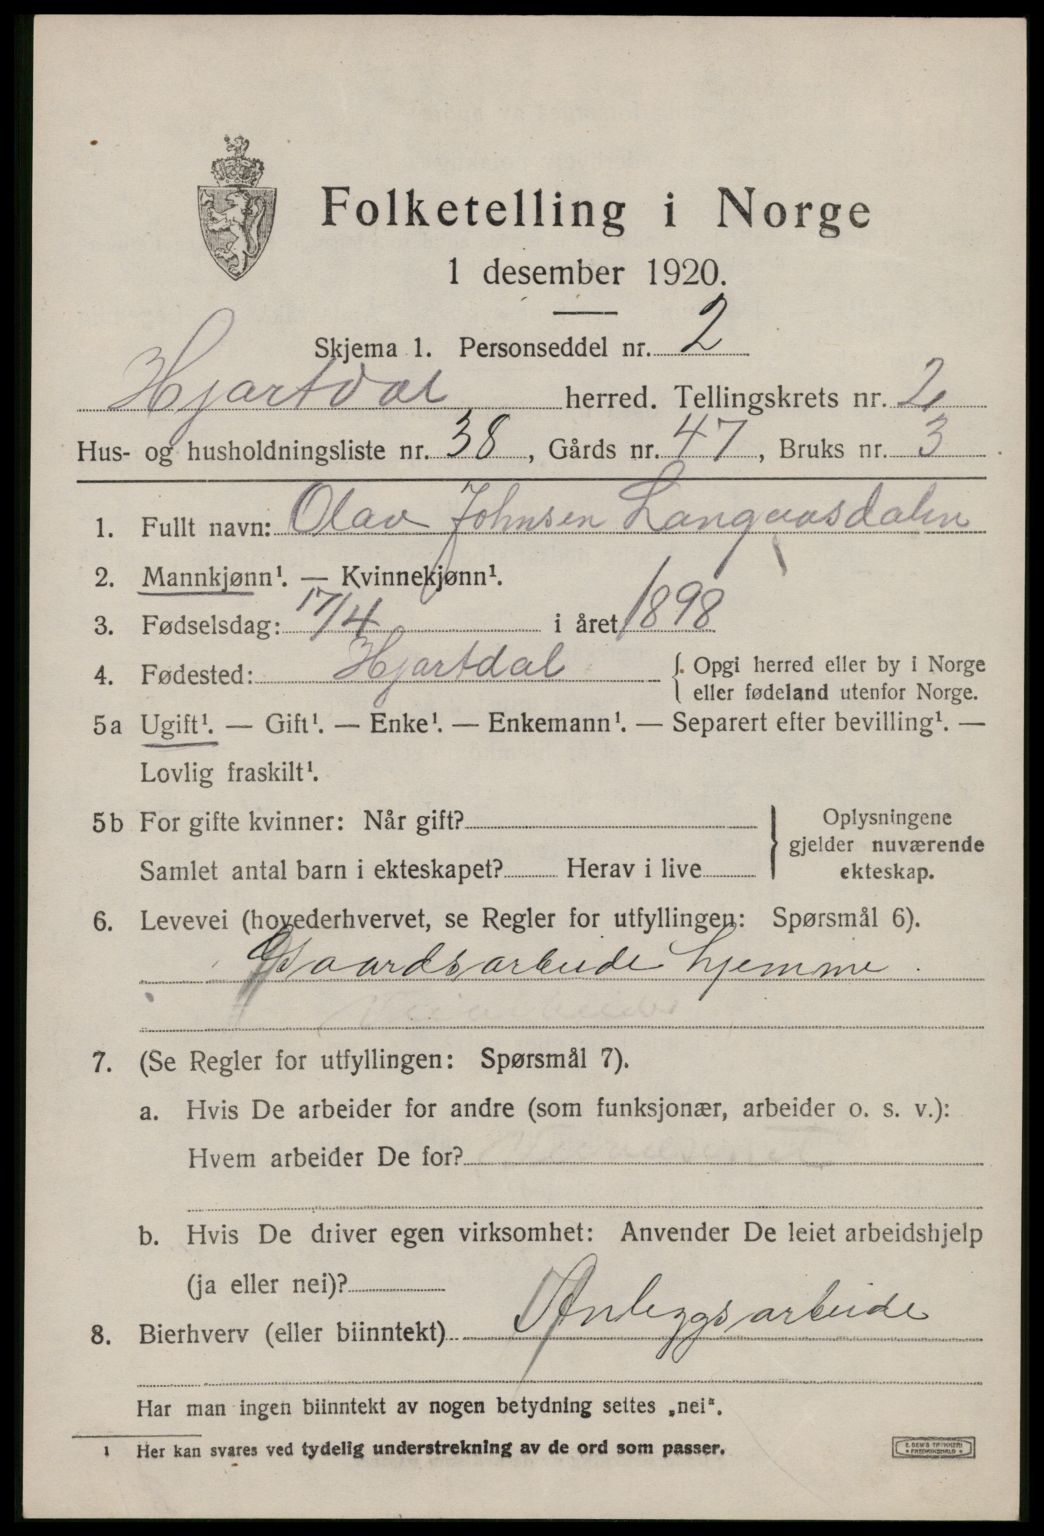 Folketelling i Norge
1 desember 1920.
Skjema 1. Personseddel nr. 2
Hjartdal herred. Tellingskrets nr. 2
Hus- og husholdningsliste nr. 38, Gårds nr. 47, Bruks nr. 3
1. Fullt navn: Olav Johnsen Langaasdalen
2. Mannkjønn¹. — Kvinnekjønn¹.
3. Fødselsdag: 17/4 i året 1898
4. Fødested: Hjartdal { Opgi herred eller by i Norge
eller fødeland utenfor Norge.
5a Ugift¹. — Gift¹. — Enke¹. — Enkemann¹. — Separert efter bevilling¹. —
Lovlig fraskilt¹.
5b For gifte kvinner: Når gift? } Oplysningene
gjelder nuværende
Samlet antal barn i ekteskapet? Herav i live ekteskap.
6. Levevei (hovederhvervet, se Regler for utfyllingen: Spørsmål 6).
Gaardsarbeide hjemme.
Veiarbeider
7. (Se Regler for utfyllingen: Spørsmål 7).
a. Hvis De arbeider for andre (som funksjonær, arbeider o. s. v.):
Hvem arbeider De for?
b. Hvis De driver egen virksomhet: Anvender De leiet arbeidshjelp
(ja eller nei)?
8. Bierhverv (eller biinntekt) Anleggsarbeide
Har man ingen biinntekt av nogen betydning settes „nei".
¹ Her kan svares ved tydelig understrekning av de ord som passer.